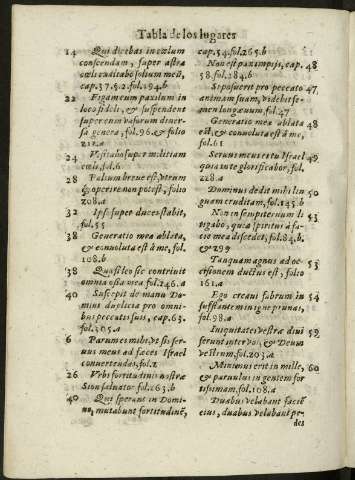 Tabla de los lugares
14 Qui dicebas in cælum
conscendam, super astra
cæli exaltabo solium meũ,
cap. 37. §. 2. fol. 194. b
22 Figam eum paxilum in
loco fideli, & suspendent
super eum vasorum diver-
sa genera, fol. 96. & folio
212. a
24 Visitabo super militiam
cæli, fol. 6
28 Palium breve est, vtrum
& operire non potest, folio
208. a
32 Ipse super duces stabit,
fol. 55
38 Generatio mea ablata,
& convoluta est à me, fol.
108. b
38 Quasi leo sic contrivit
omnia ossa mea fol. 246. a
40 Suscepit de manu Do-
mini duplicia pro omni-
bus peccatis suis, cap. 63.
fol. 305. a
6 Parum est mihi, vt sis ser-
vus meus ad fæces Israel
convertendas, fol. 1
26 Vrbs fortitudinis nostræ
Sion salvator fol. 263. b
40 Qui sperant in Domi-
no, mutabunt fortitudinẽ,
cap. 54. fol. 265. b
Non est pax impijs, cap. 48
58. fol. 284. b
Si posuerit pro peccato 47
animam suam, videbit se-
men longævum, fol. 47
Generatio mea ablata 48
est, & convoluta est à me,
fol. 61
Servus meus es tu Israel 49
quia in te glorificabor, fol.
228. a
Dominus dedit mihi lin 50
guam eruditam, fol. 145. b
Non in sempiternum li 53
tigabo, quia spiritus à fa-
cie mea discedet, fol. 84. b.
& 299
Tanquam agnus ad oc- 53
cisionem ductus est, folio
161. a
Ego creavi fabrum in 54
sufflantem in igne prunas,
fol. 98. a
Iniquitates vestræ divi 59
serunt inter vos, & Deum
vestrum, fol. 203. a
Minimus erit in mille, 60
& parvulus in gentem for
tissimam, fol. 108. a
Duabus velabant faciẽ
eius, duabus velabant pe-
des